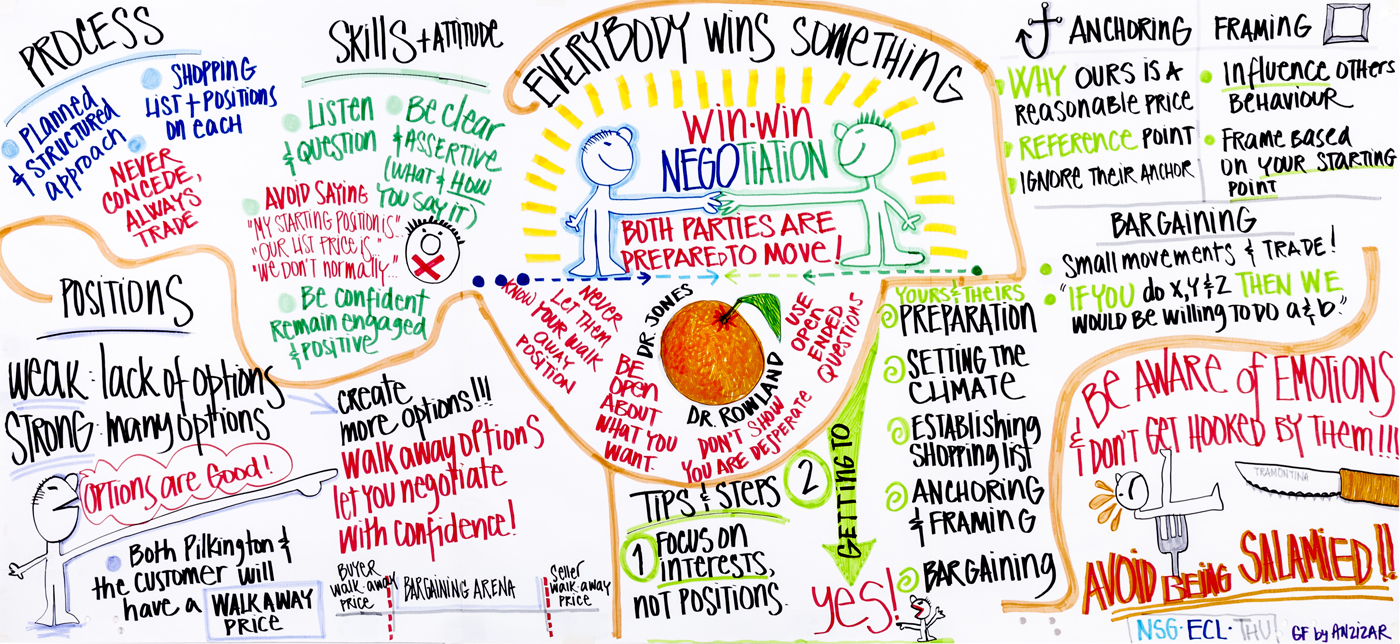 PROCESS
PLANNED
& STRUCTURED
approach
SHOPPING
LIST + POSITIONS
ON EACH
NEVER
CONCEDE,
ALWAYS
TRADE
SKILLS + ATTITUDE
LISTEN
& QUESTION
Be clear
& ASSERTIVE
(WHAT & HOW
YOU SAY IT)
AVOID SAYING
"MY STARTING POSITION IS"..
"OUR LIST PRICE IS.."
"WE DON'T NORMALLY..."
Be confident
Remain engaged
& POSITIVE
POSITIONS
WEAK: lack of options
STRONG: many options
OPTIONS are Good!
create
more options!!!
walk away options
let you negotiate
with confidence!
Both Pilkington &
the customer will
have a WALK AWAY
PRICE
BUYER
walk-away
PRICE
BARGAINING ARENA
Seller
walk-away
PRICE
EVERYBODY WINS SOMETHING
WIN-WIN
NEGOTIATION
BOTH PARTIES ARE
PREPARED TO MOVE!
KNOW YOUR WALK
AWAY
POSITION
NEVER
LET THEM
DR. JONES
DR. ROWLAND
BE
OPEN
ABOUT
WHAT YOU
WANT.
DON'T SHOW
YOU ARE DESPERATE
USE
OPEN
ENDED
QUESTIONS
TIPS & STEPS
1 FOCUS ON
INTERESTS,
NOT POSITIONS.
2
GETTING TO
YES!
YOURS & THEIRS
PREPARATION
SETTING THE
CLIMATE
Establishing
Shopping list
ANCHORING
& FRAMING
BARGAINING
ANCHORING
WHY OURS IS A
REASONABLE PRICE
REFERENCE POINT
IGNORE THEIR ANCHOR
FRAMING
Influence OTHERS
BEHAVIOUR
FRAME BASED
ON YOUR STARTING
POINT
BARGAINING
Small movements & TRADE!
"IF YOU do X,Y & Z THEN WE
WOULD BE WILLING TO DO a & b."
BE AWARE of EMOTIONS
& DON'T GET HOOKED BY THEM!!!
TRAMONTINA
AVOID BEING SALAMIED!!
NSG·ECL·THU!
GF by ANZIZAR